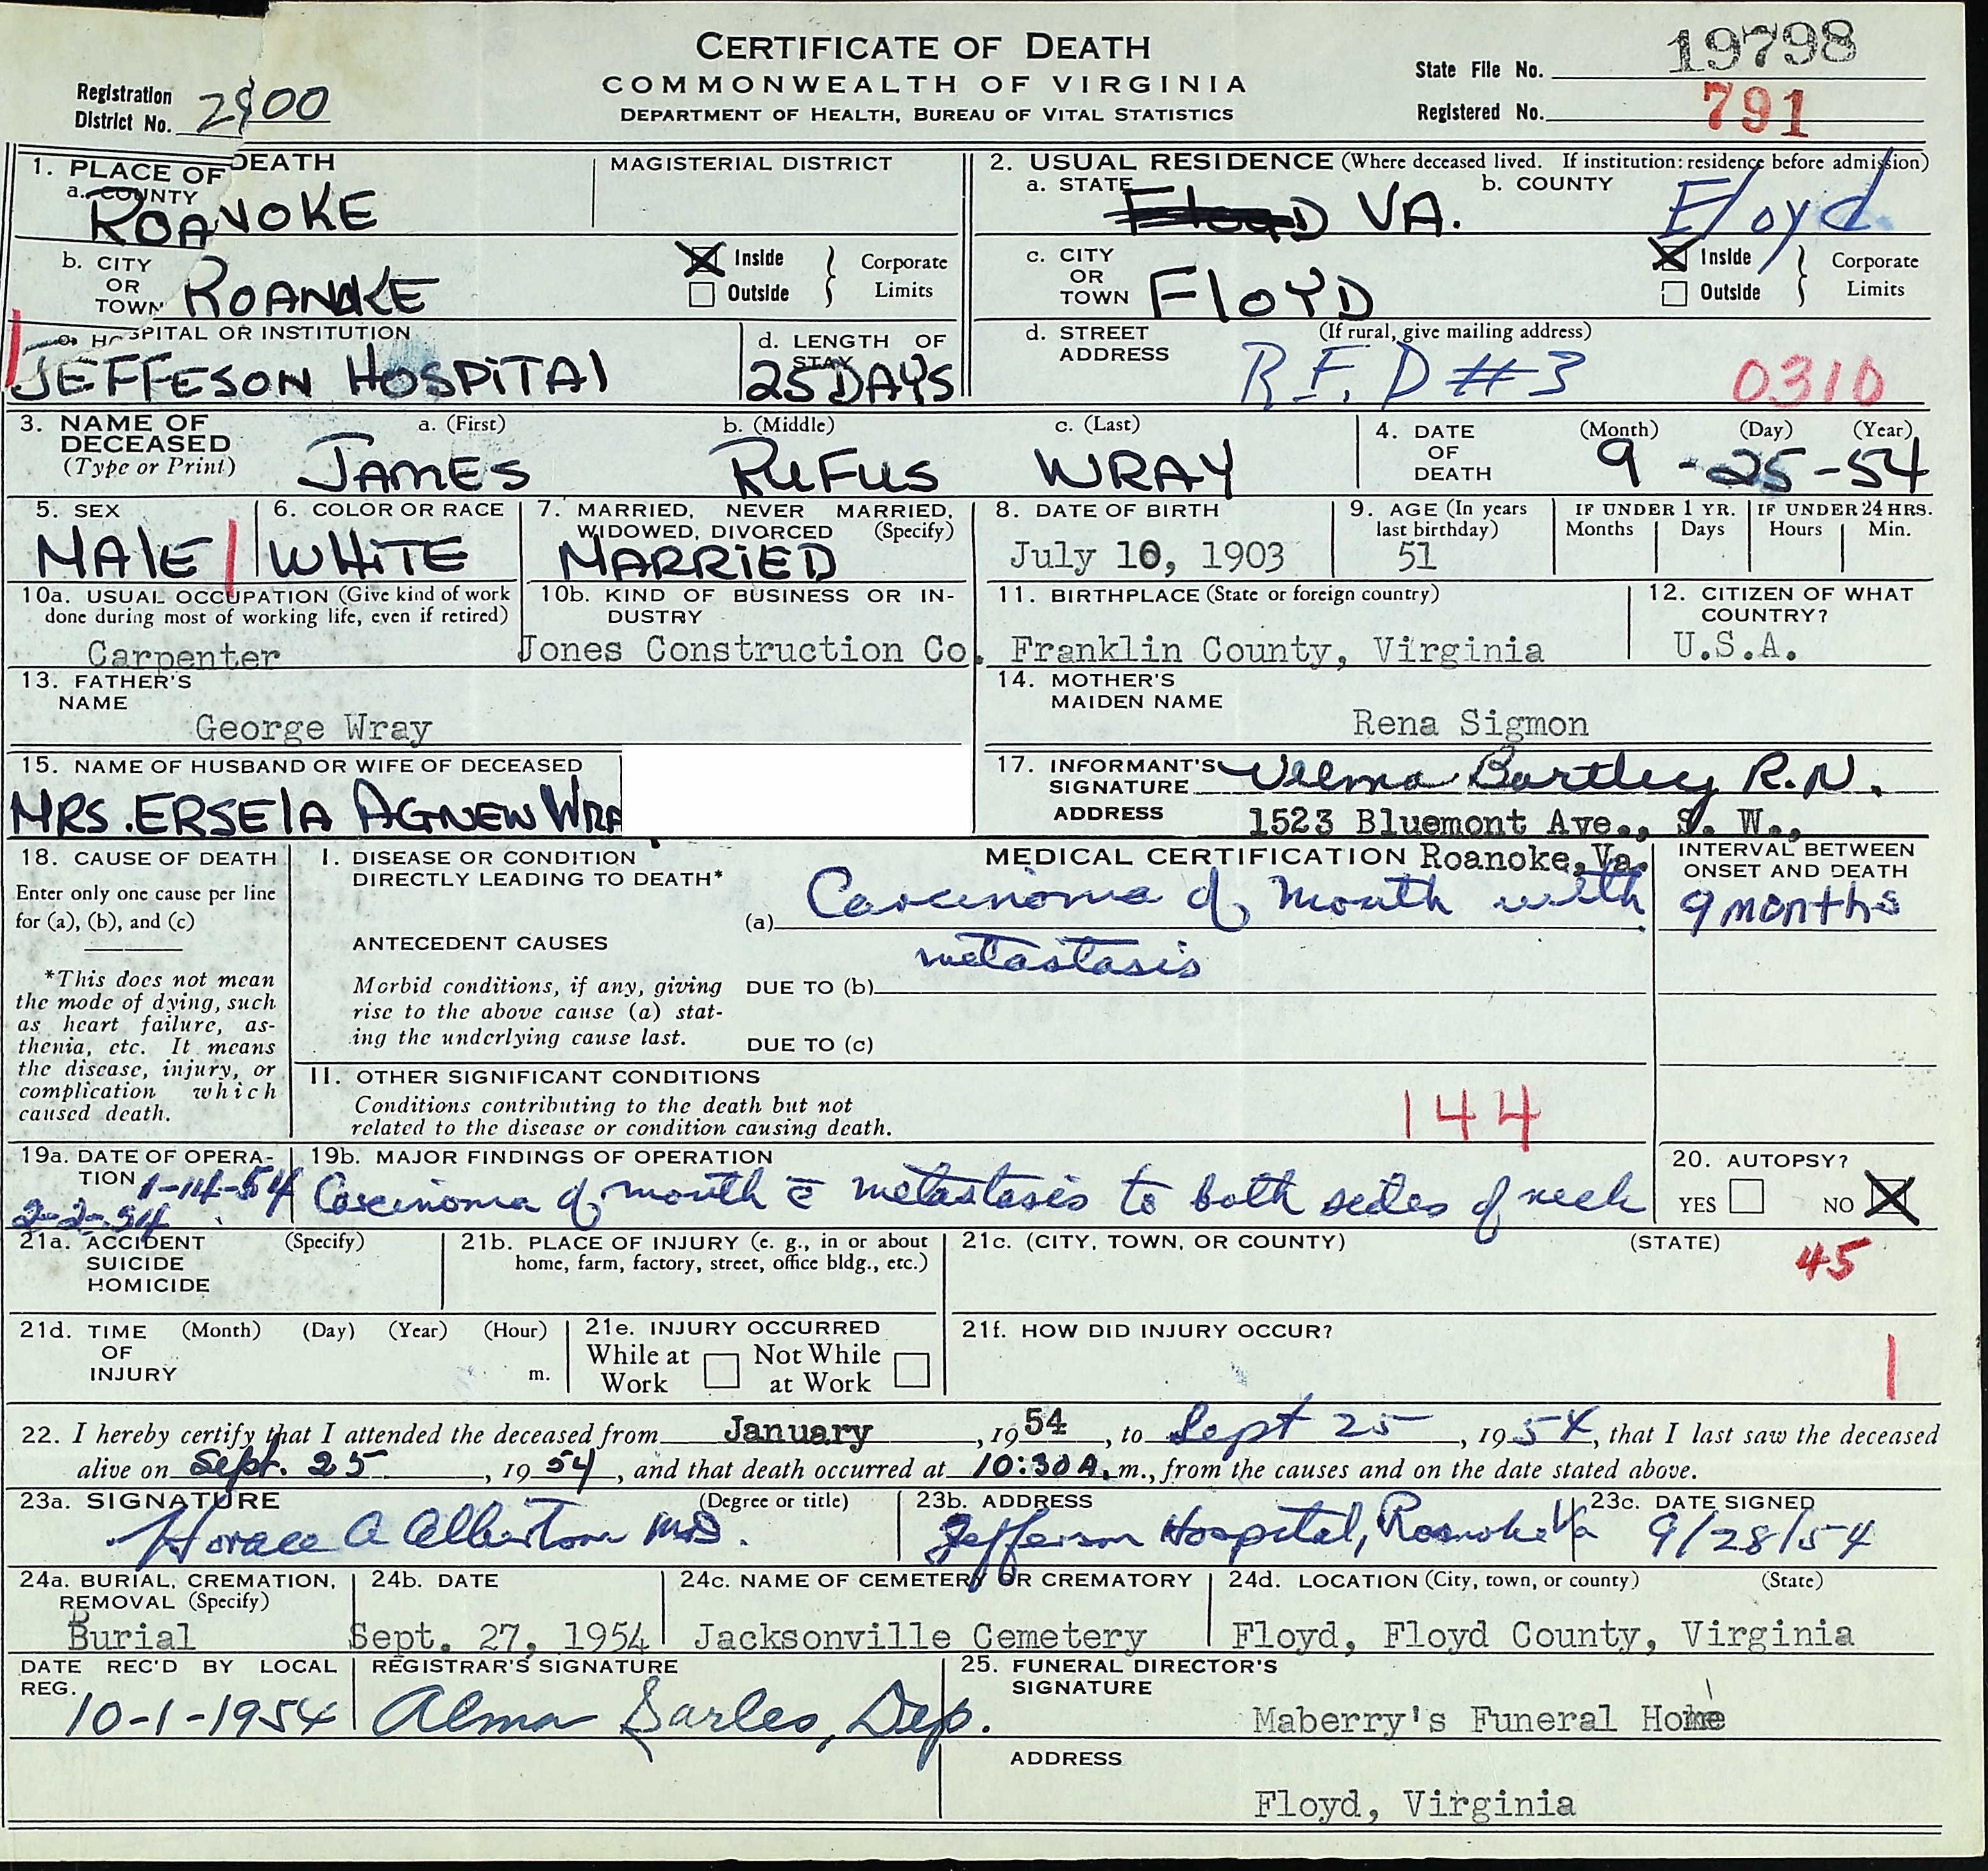 CERTIFICATE OF DEATH
COMMONWEALTH OF VIRGINIA
DEPARTMENT OF HEALTH, BUREAU OF VITAL STATISTICS
Registration District No. 2900
State File No. 19798
Registered No. 791
1. PLACE OF DEATH
a. COUNTY
ROANOKE
MAGISTERIAL DISTRICT
2. USUAL RESIDENCE (Where deceased lived. If institution: residence before admission)
a. STATE VA.
b. COUNTY Floyd
b. CITY OR TOWN ROANOKE
Inside
Outside
Corporate Limits
c. CITY OR TOWN FLOYD
Inside
Outside
Corporate Limits
HOSPITAL OR INSTITUTION
JEFFESON HOSPITAL
d. LENGTH OF STAY
25 DAYS
d. STREET ADDRESS
(If rural, give mailing address)
R.F.D #3
0310
3. NAME OF DECEASED
(Type or Print)
a. (First) JAMES
b. (Middle) RUFUS
c. (Last) WRAY
4. DATE OF DEATH
(Month) (Day) (Year)
9-25-54
5. SEX
MALE
6. COLOR OR RACE
WHITE
7. MARRIED, NEVER MARRIED, WIDOWED, DIVORCED (Specify)
MARRIED
8. DATE OF BIRTH
July 10, 1903
9. AGE (In years last birthday)
51
IF UNDER 1 YR.
Months Days
IF UNDER 24 HRS.
Hours Min.
10a. USUAL OCCUPATION (Give kind of work done during most of working life, even if retired)
Carpenter
10b. KIND OF BUSINESS OR INDUSTRY
Jones Construction Co.
11. BIRTHPLACE (State or foreign country)
Franklin County, Virginia
12. CITIZEN OF WHAT COUNTRY?
U.S.A.
13. FATHER'S NAME
George Wray
14. MOTHER'S MAIDEN NAME
Rena Sigmon
15. NAME OF HUSBAND OR WIFE OF DECEASED
MRS. ERSELA AGNEW WRA
17. INFORMANT'S SIGNATURE Velma Bartley R.N.
ADDRESS 1523 Bluemont Ave., S. W.,
Roanoke, Va.
18. CAUSE OF DEATH
Enter only one cause per line for (a), (b), and (c)
*This does not mean the mode of dying, such as heart failure, asthenia, etc. It means the disease, injury, or complication which caused death.
MEDICAL CERTIFICATION
I. DISEASE OR CONDITION DIRECTLY LEADING TO DEATH*
(a) Carcinoma of mouth with
metastasis
INTERVAL BETWEEN ONSET AND DEATH
9 months
ANTECEDENT CAUSES
Morbid conditions, if any, giving rise to the above cause (a) stating the underlying cause last.
DUE TO (b)
DUE TO (c)
II. OTHER SIGNIFICANT CONDITIONS
Conditions contributing to the death but not related to the disease or condition causing death.
144
19a. DATE OF OPERATION 1-14-54
2-2-54
19b. MAJOR FINDINGS OF OPERATION
Carcinoma of mouth c̄ metastasis to both sides of neck
20. AUTOPSY?
YES NO
21a. ACCIDENT SUICIDE HOMICIDE (Specify)
21b. PLACE OF INJURY (e. g., in or about home, farm, factory, street, office bldg., etc.)
21c. (CITY, TOWN, OR COUNTY) (STATE)
45
21d. TIME OF INJURY (Month) (Day) (Year) (Hour) m.
21e. INJURY OCCURRED
While at Work Not While at Work
21f. HOW DID INJURY OCCUR?
1
22. I hereby certify that I attended the deceased from January, 1954, to Sept 25, 1954, that I last saw the deceased
alive on Sept. 25, 1954, and that death occurred at 10:30 A.m., from the causes and on the date stated above.
23a. SIGNATURE (Degree or title)
Horace A Albertson MD.
23b. ADDRESS
Jefferson Hospital, Roanoke Va
23c. DATE SIGNED
9/28/54
24a. BURIAL, CREMATION, REMOVAL (Specify)
Burial
24b. DATE
Sept. 27, 1954
24c. NAME OF CEMETERY OR CREMATORY
Jacksonville Cemetery
24d. LOCATION (City, town, or county) (State)
Floyd, Floyd County, Virginia
DATE REC'D BY LOCAL REG.
10-1-1954
REGISTRAR'S SIGNATURE
Alma Sarles, Dep.
25. FUNERAL DIRECTOR'S SIGNATURE
Maberry's Funeral Home
ADDRESS
Floyd, Virginia